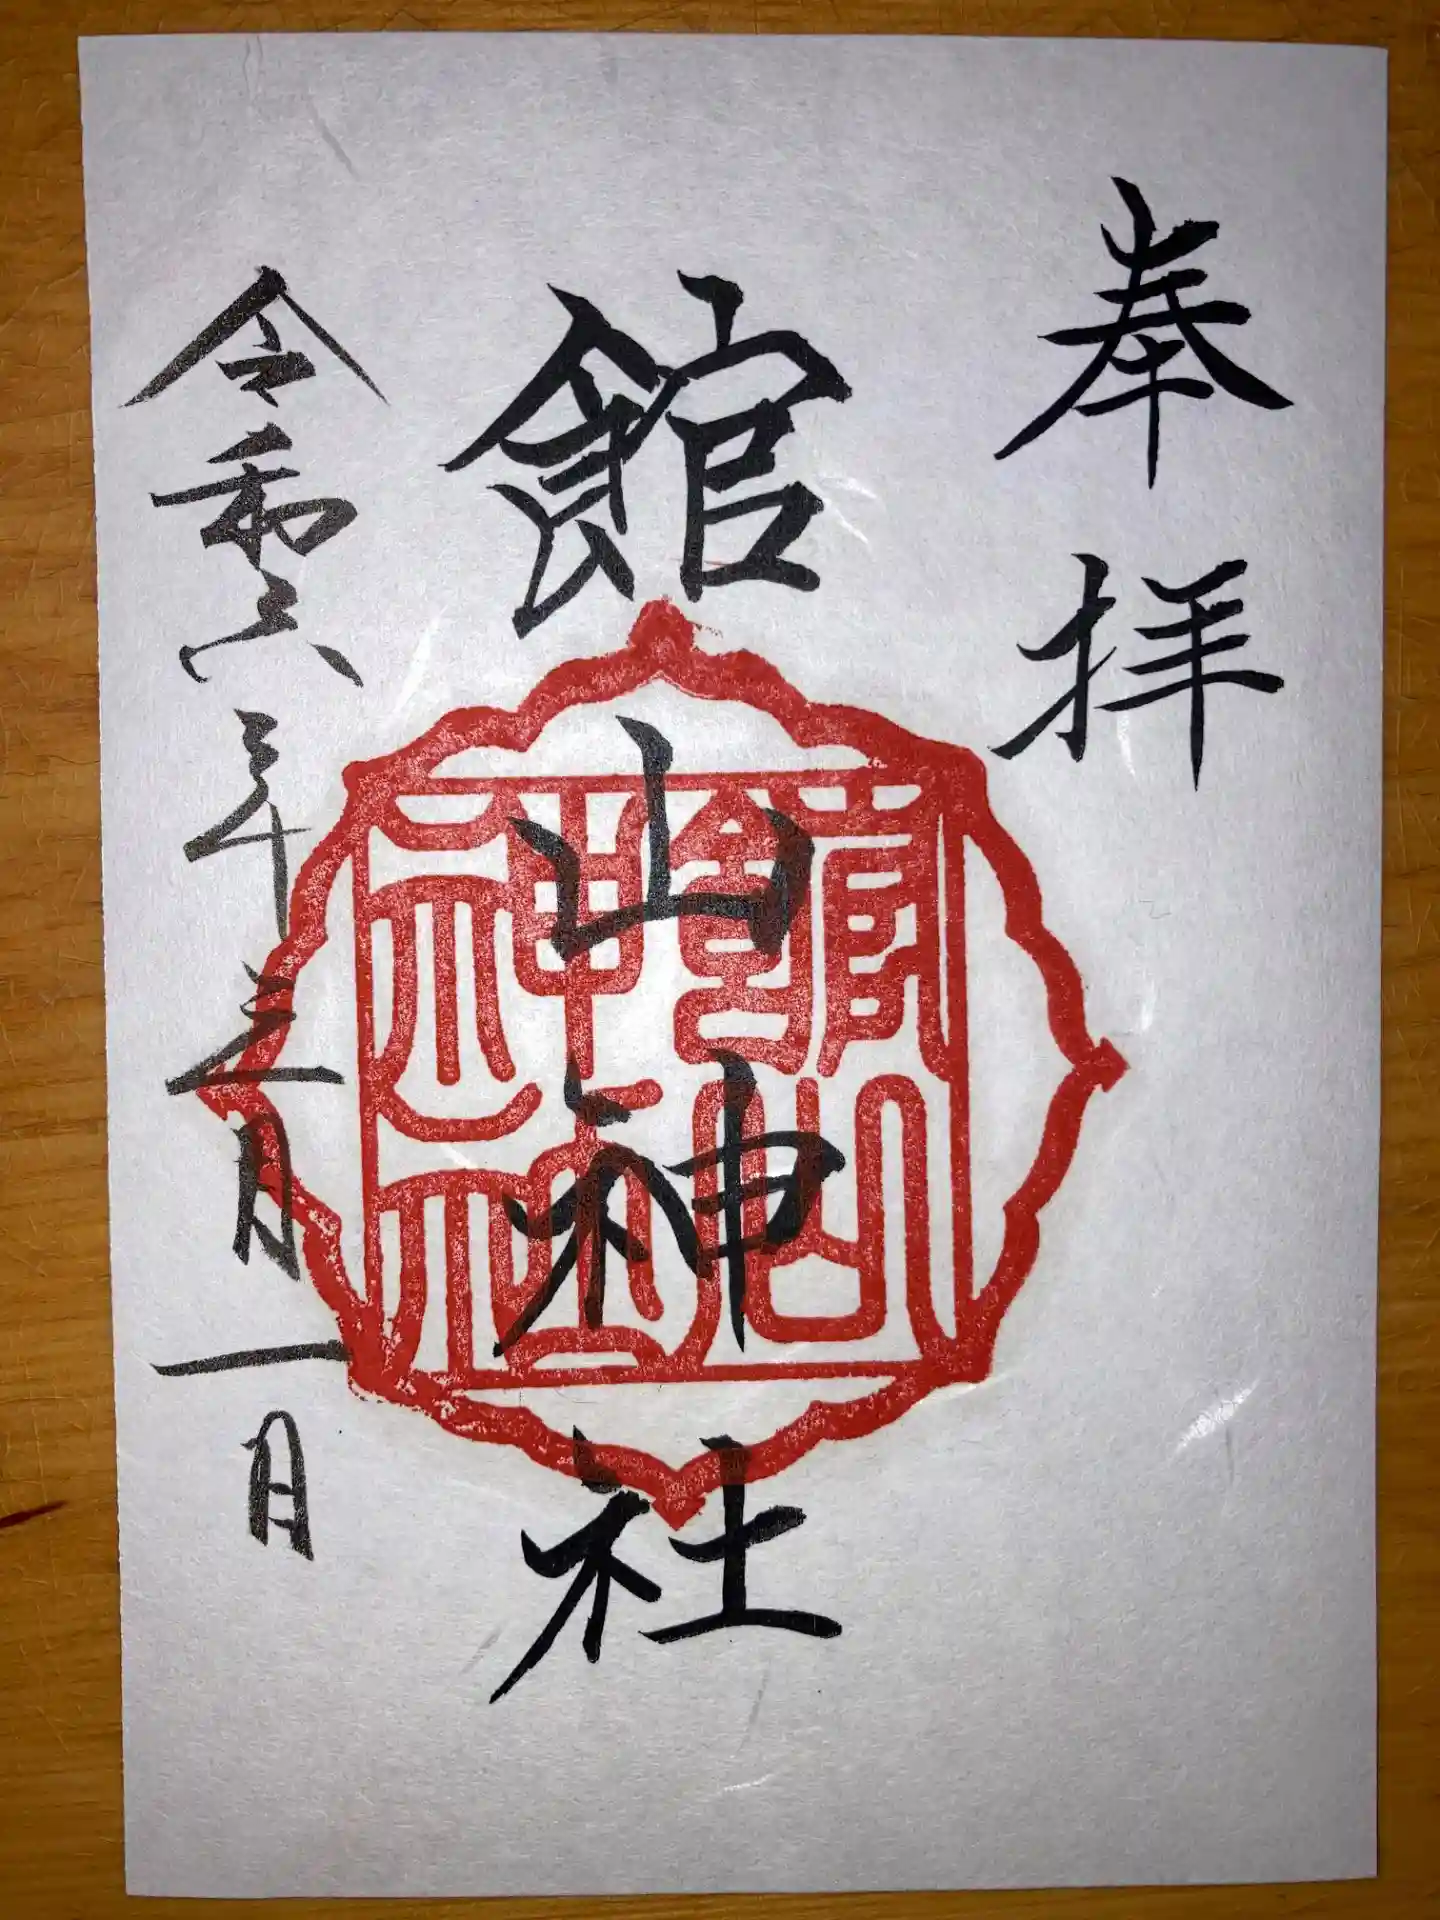 奉拝
館山神社
館山神社
令和六年三月一日